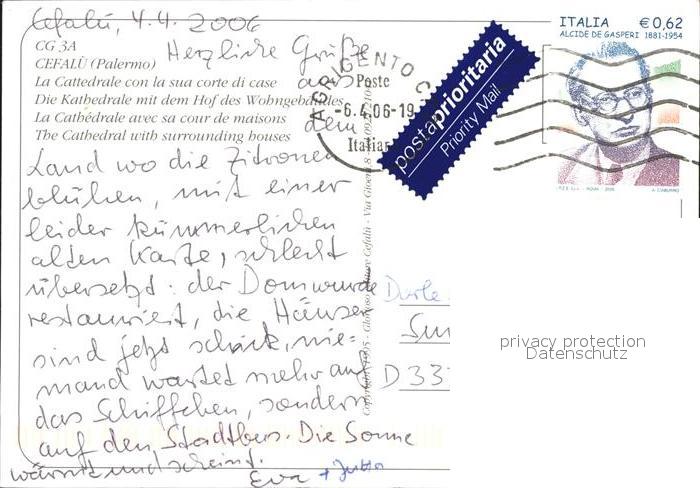 Cefalù, 4.4.2006
CG 3A
CEFALÙ (Palermo)
La Cattedrale con la sua corte di case
Die Kathedrale mit dem Hof des Wohngebäudes
La Cathédrale avec sa cour de maisons
The Cathedral with surrounding houses
Herzliche Grüße
aus
dem
Land wo die Zitronen
blühen, mit einer
leider kümmerlichen
alten Karte, schlecht
übersetzt: der Dom wurde
restauriert, die Häuser
sind jetzt schick, nie=
mand wartet mehr auf
das Schiffchen, sondern
auf den Stadtbus. Die Sonne
wärmt und scheint.
Eva + Jutta
AGRIGENTO C
Poste
-6.4.06-19
Italiane
postaprioritaria
Priority Mail
ITALIA € 0,62
ALCIDE DE GASPERI 1881-1954
I.P.Z.S. S.p.A. - ROMA - 2004
Copyright 1995
D 33
privacy protection
Datenschutz